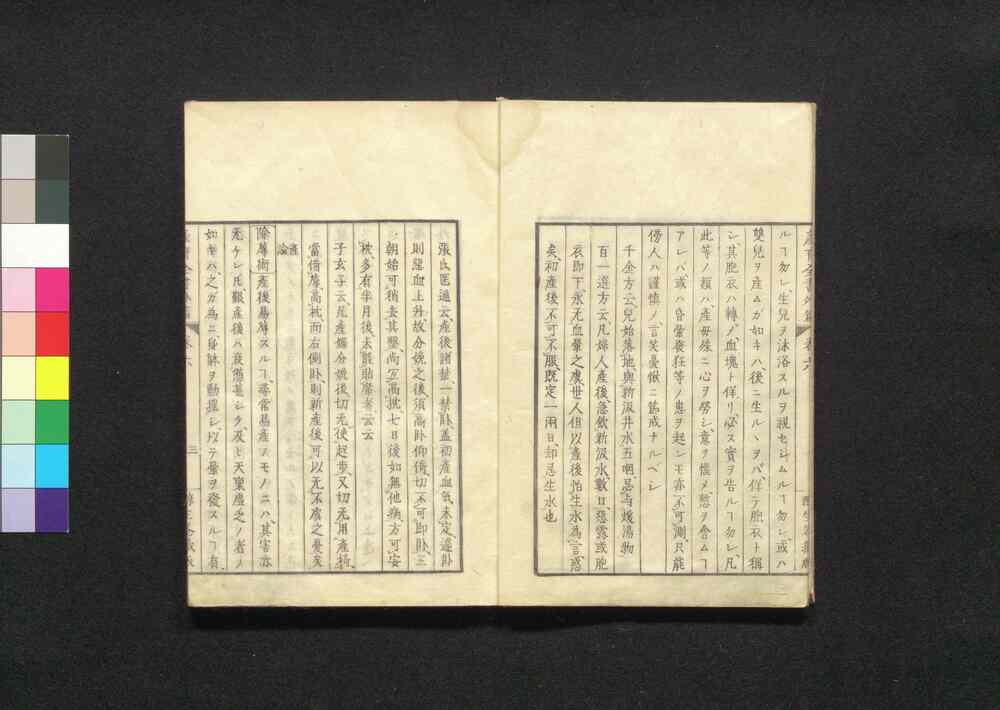 ルヿ勿レ生兒ヲ沐浴スルヲ視セシムルヿ勿レ或ハ
雙兒ヲ産ムガ如キハ後ニ生ルヽヲバ佯テ胞衣ト稱
シ其胞衣ハ轉ノ血塊ト佯リ必ス實ヲ告ルヿ勿レ凡
此等ノ類ハ産母殊ニ心ヲ勞シ意ヲ懐メ愁ヲ含ムヿ
アレバ或ハ昏暈發狂等ノ患ヲ起シモ亦不可測只能
傍人ハ謹慎ノ言笑憂懼ニ篤戒ナルベシ
千金方云兒始落地與新汲井水五咽忌與煖湯物
百一選方云凡婦人産後急飲新汲水數口惡露或胞
衣即下永无血暈之虞世人但以産後怕生水為言惑
矣初産後不可不服既定一兩日却忌生水也
張氏医通云産後諸禁一禁卧蓋初産血氣未定遽卧
則惡血上升故分娩之後須高卧仰倚切不可即卧三
朝始可稍去其墊尚宜高枕七日後如無他病方可安
枕多有半月後未能貼席者云云
子玄子云凡産蠲分娩後切无使起坐又切无用産椅
當脩蓐高枕而右側卧則新産後可以无不虞之憂矣
産論
除蓐術産後易蓐スルヿ尋常易産スモノニハ其害亦
无ケレ𪜈艱産後ハ衰憊甚シク及ヒ天稟虚乏ノ者ノ
如キハ之ガ為ニ身体ヲ動揺シ以テ暈ヲ發スルヿ有
三